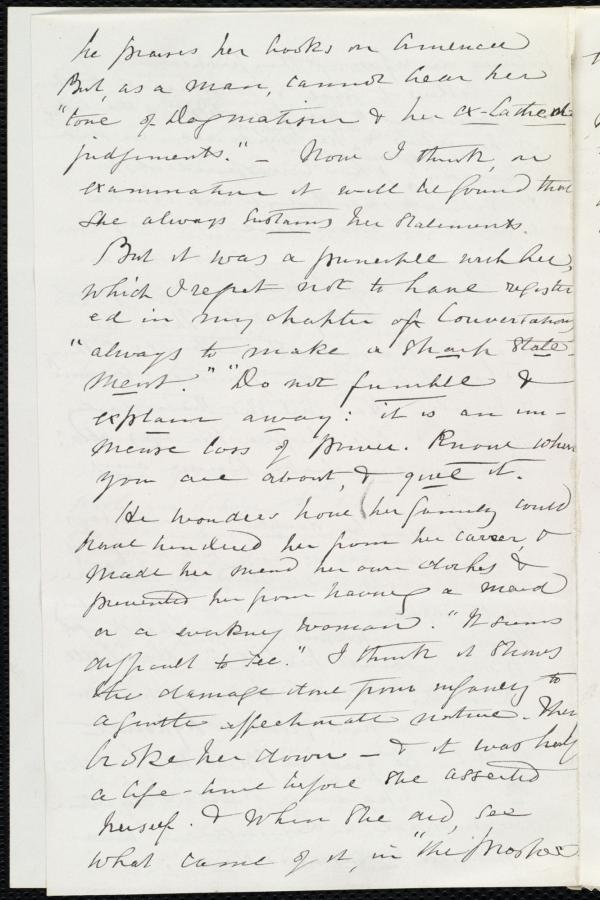 he praises her books on America
But, as a man, cannot bear her
"tone of Dogmatism & her ex-Cathedr
judgments." - Now I think, on
examination it will be found that
she always sustains her statements.
But it was a principle with her,
which I regret not to have register
ed in my chapter of Conversations
"always to make a sharp state-
ment." "Do not fumble &
explain away: it is an im-
mense loss of power. Know what
you are about, &
He wonders how her family could
have hindered her from her career, &
made her mend her own clothes &
prevented her from having a maid
or a working woman. "It seems
difficult to see." I think it shows
the damage done from infancy to
a gentle affectionate nature. They
broke her down - & it was half
a life-time before she asserted
herself. & When she did, see
what came of it, in "the